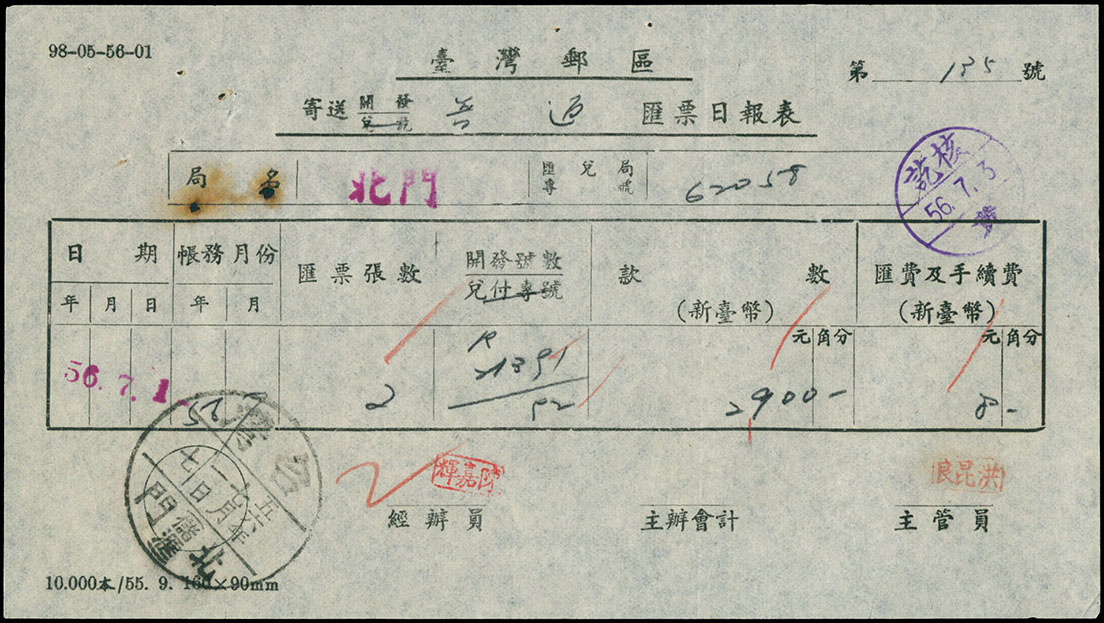 98-05-56-01
臺灣郵區
第 135 號
寄送 開發 兌訖 普通 匯票日報表
局名 北門 匯兌局專號 62058
核訖
56.7.3
日期 帳務月份 匯票張數 開發號數 兌付專號 款數 (新臺幣) 匯費及手續費 (新臺幣)
年 月 日 年 月 元 角分 元 角分
56.7.1 56 7 2 R 21391 52 2900- 8-
臺灣
五六年
七月一日
北門
儲匯
陳嘉輝
洪昆浪
經辦員 主辦會計 主管員
10.000本/55. 9. 160×90mm